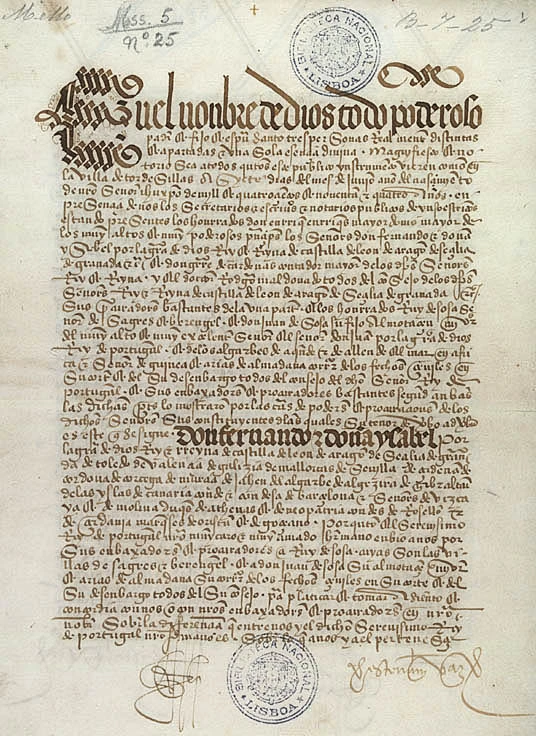 Mello
Mss. 5
Nº. 25
B-7-25
BIBLIOTECA NACIONAL LISBOA
En el nonbre de dios todo poderoso
padre & fijo & espu santo tres personas Realmente distintas
& apartadas & una sola esencia divina. Magnifiesto & no
torio sea a todos quantos este publico ynstrumento vieren como en
la villa de tordesillas A siete dias del mes de junio año del nasçimiento
de nro Señor ihu xpo de mill & quatroçientos & noventa & quatro años. en
presençia de nos los Secretarios & escrivanos & notarios publicos de yuso escritos
estando presentes los honrados don enrrique enrriques mayordomo mayor de
los muy altos & muy poderosos prinçipes los Señores don fernando & doña
ysabel por la graçia de dios Rey & Reyna de castilla de leon de aragon de seçilia
de granada & & don gutierre de cardenas contador mayor de los dichos Señores
Rey & Reyna. & el dottor Rodrigo maldonado todos del consejo de los dichos
Señores Rey & Reyna de castilla de leon de aragon de Seçilia de granada &
Sus procuradores bastantes de la una parte. & los honrados Ruy de Sosa Se
ñor de Sagres & berengel. & don juan de Sosa Su fijo Almotaçen mayor
del muy alto & muy exçelente Señor el Señor don juan por la graçia de dios
Rey de portugal & de los algarbes de aquende & de allende el mar en afri
ca & Señor de guinea & arias de almadana corregidor de los fechos çeviles en
Su corte & del Su desenbargo todos del consejo del dicho Señor Rey de
portugal & Sus enbaxadores & procuradores bastantes Segund amas
las dichas partes lo mostraron por las cartas de poderes & procuraçiones de los
dichos Señores Sus constituyentes de las quales Su tenor de verbo ad verbo
es este que se sigue Don fernando & doña ysabel por
la graçia de dios Rey & Reyna de castilla de leon de aragon de Seçilia de grana
da de toledo de valençia de galizia de mallorcas de Sevilla de çerdeña de
cordova de corçega de murçia de jahen del algarbe de algezira de gibraltar
de las yslas de canaria conde & condesa de barçelona & Señores de vizca
ya & de molina duques de athenas & de neopatria condes de Rosellon &
de çerdania marqueses de oristan & de goçiano. Por quanto el Serenisimo
Rey de portugal nro muy caro & muy amado hermano enbio a nos por
Sus enbaxadores & procuradores a Ruy de Sosa cuyas Son las vi
llas de Sagres & berengel. & a don juan de Sosa Su almotaçen mayor
& arias de almadana Su corregidor de los fechos çeviles en Su corte & del
Su desenbargo todos del Su consejo. para platicar & tomar asiento &
concordia con nos o con nros enbaxadores & procuradores en nro
nonbre Sobre la diferençia que entre nos y el dicho Serenisimo Rey
de portugal nro hermano es Sobre lo que a nos y a el perteneçe
BIBLIOTECA NACIONAL LISBOA